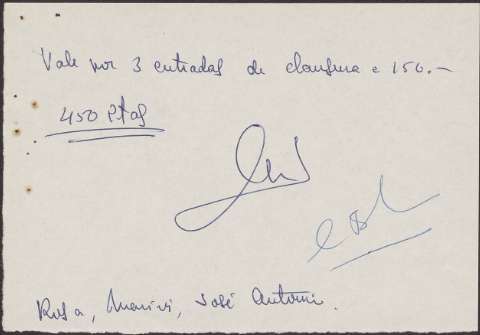 Vale por 3 entradas de clausura a 150.-
450 Ptas
Rosa, Marivi, José Antonio.